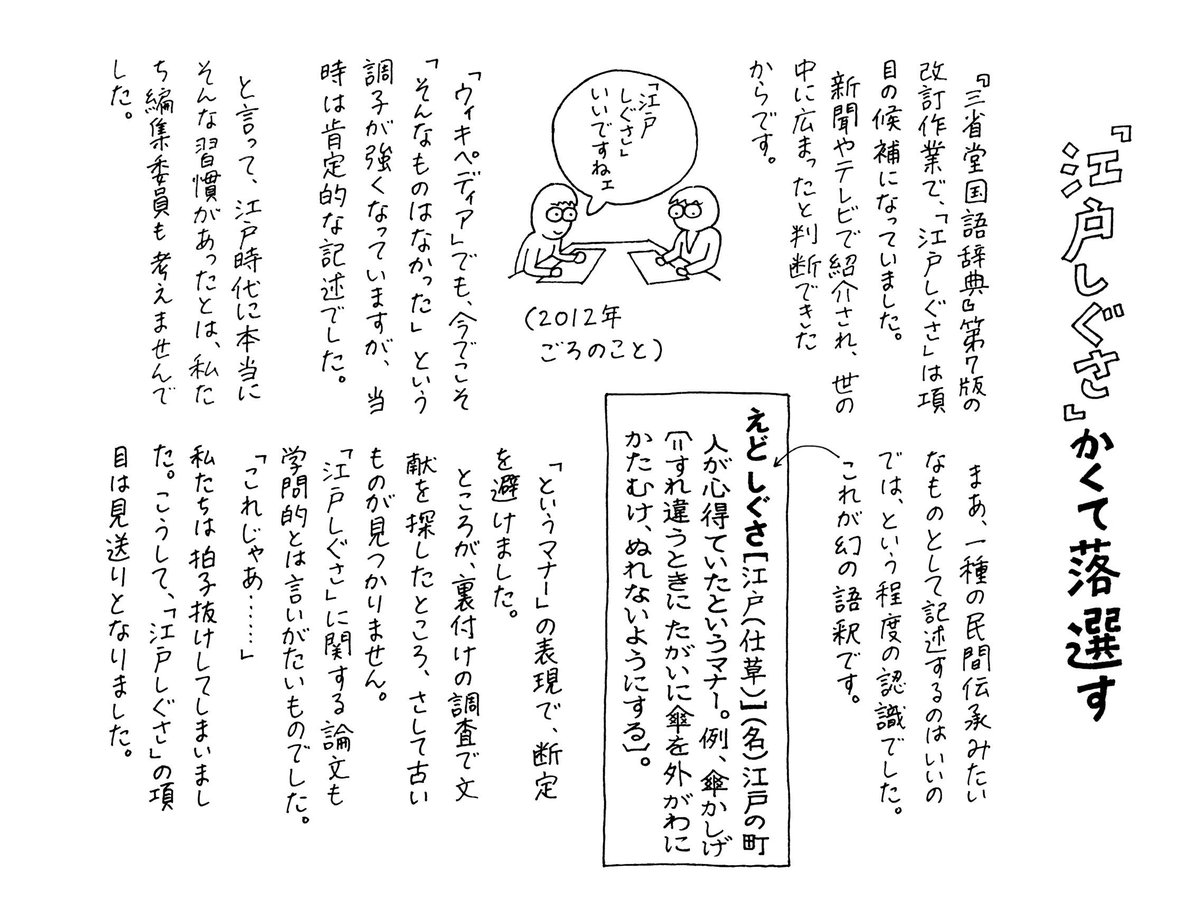 『江戸しぐさ』かくて落選す
『三省堂国語辞典』第7版の
改訂作業で、「江戸しぐさ」は項
目の候補になっていました。
新聞やテレビで紹介され、世の
中に広まったと判断できた
からです。
「江戸
しぐさ」
いいですねェ
(2012年
ごろのこと)
「ウィキペディア」でも、今でこそ
「そんなものはなかった」という
調子が強くなっていますが、当
時は肯定的な記述でした。
と言って、江戸時代に本当に
そんな習慣があったとは、私た
ち編集委員も考えませんで
した。
まあ、一種の民間伝承みたい
なものとして記述するのはいいの
では、という程度の認識でした。
これが幻の語釈です。
えどしぐさ[江戸(仕草)](名)江戸の町
人が心得ていたというマナー。例、傘かしげ
〔=すれ違うときにたがいに傘を外がわに
かたむけ、ぬれないようにする〕。
「というマナー」の表現で、断定
を避けました。
ところが、裏付けの調査で文
献を探したところ、さして古い
ものが見つかりません。
「江戸しぐさ」に関する論文も
学問的とは言いがたいものでした。
「これじゃあ……」
私たちは拍子抜けしてしまいまし
た。こうして、「江戸しぐさ」の項
目は見送りとなりました。